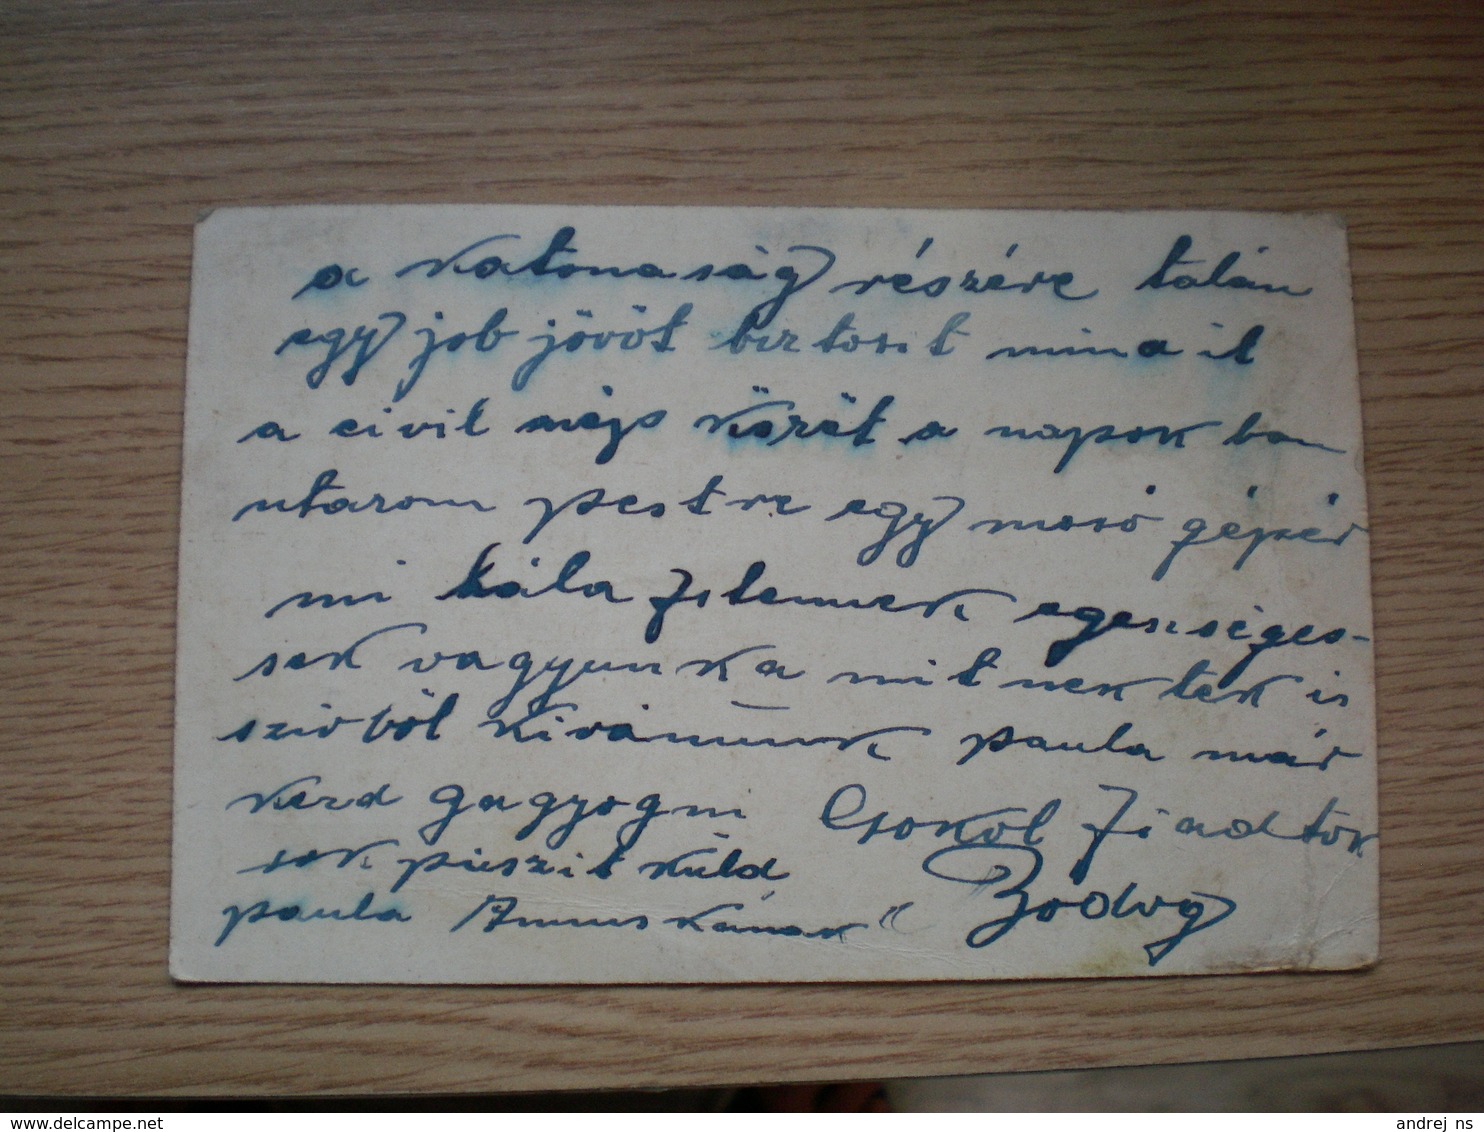 a katonaság részére talán
egy job jövöt biztosit mina it
a civil mégis között a napok ban
utazom pestre egy mosó gépér
mi hála Istennek egenséges-
sek vagyunk a mit nektek is
szivböl kivánunk paula már
kezd gagyogni Csokol Fiadtok
sok puszit küld
paula Annuskának Zodwg
andrej_ns